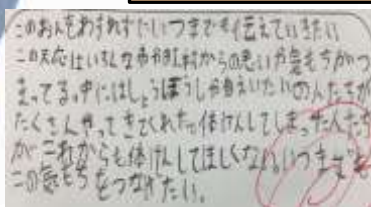 このおんをわすれずにいつまでも伝えていきたい
この天応はいろんな市や町村からの思いや気もちがつ
まってる。中にはしょうぼうしゃや自えいたいの人たちが
たくさんやってきてくれた。体けんしてしまった人たち
が これからも体けんしてほしくない。いつまでも
この気もちをつなげたい。